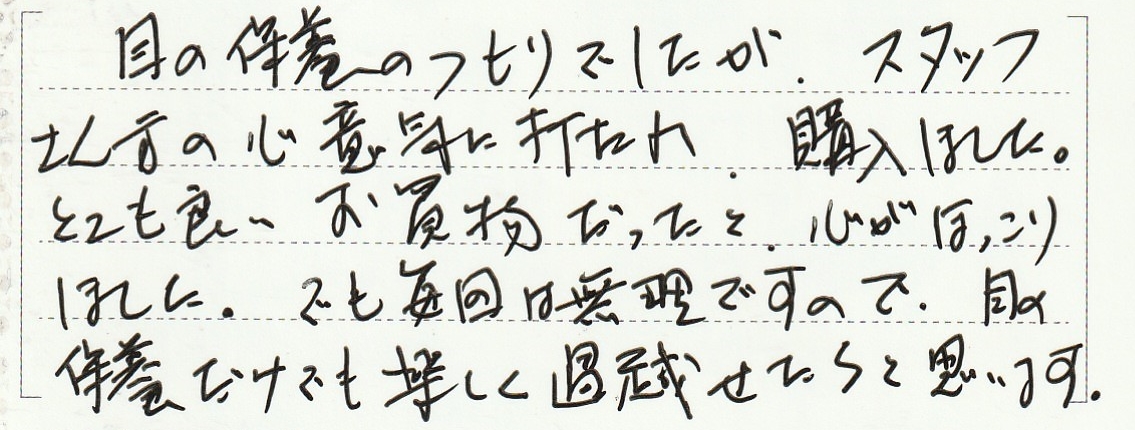 目の保養のつもりでしたが、スタッフ
さん方の心意気に打たれ、購入しました。
とても良いお買物だったと、心がほっこり
しました。でも毎回は無理ですので、目の
保養だけでも楽しく過せたらと思います。